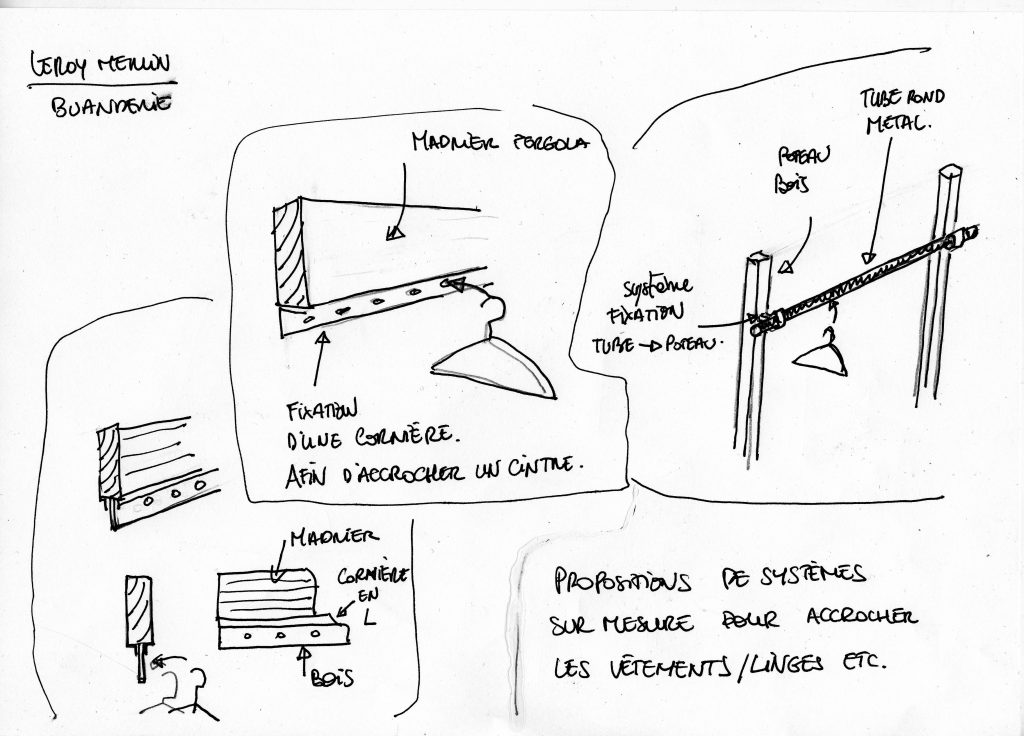 LEROY MERLIN
BUANDERIE
MADRIER PERGOLA
FIXATION
D'UNE CORNIÈRE.
AFIN D'ACCROCHER UN CINTRE.
TUBE ROND
METAL.
POTEAU
BOIS
SYSTÈME
FIXATION
TUBE → POTEAU.
MADRIER
CORNIÈRE
EN
L
BOIS
PROPOSITIONS DE SYSTÈMES
SUR MESURE POUR ACCROCHER
LES VÊTEMENTS/LINGES ETC.